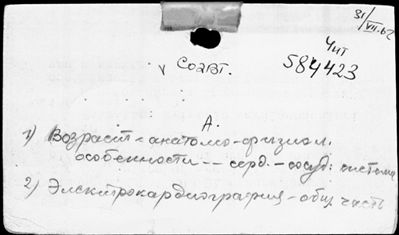 31/VII-62
Чит
584423
v Соавт.
А.
1) Возраст - анатомо-физиол.
особенности -- серд.-сосуд. системы
2) Электрокардиография - общ. часть